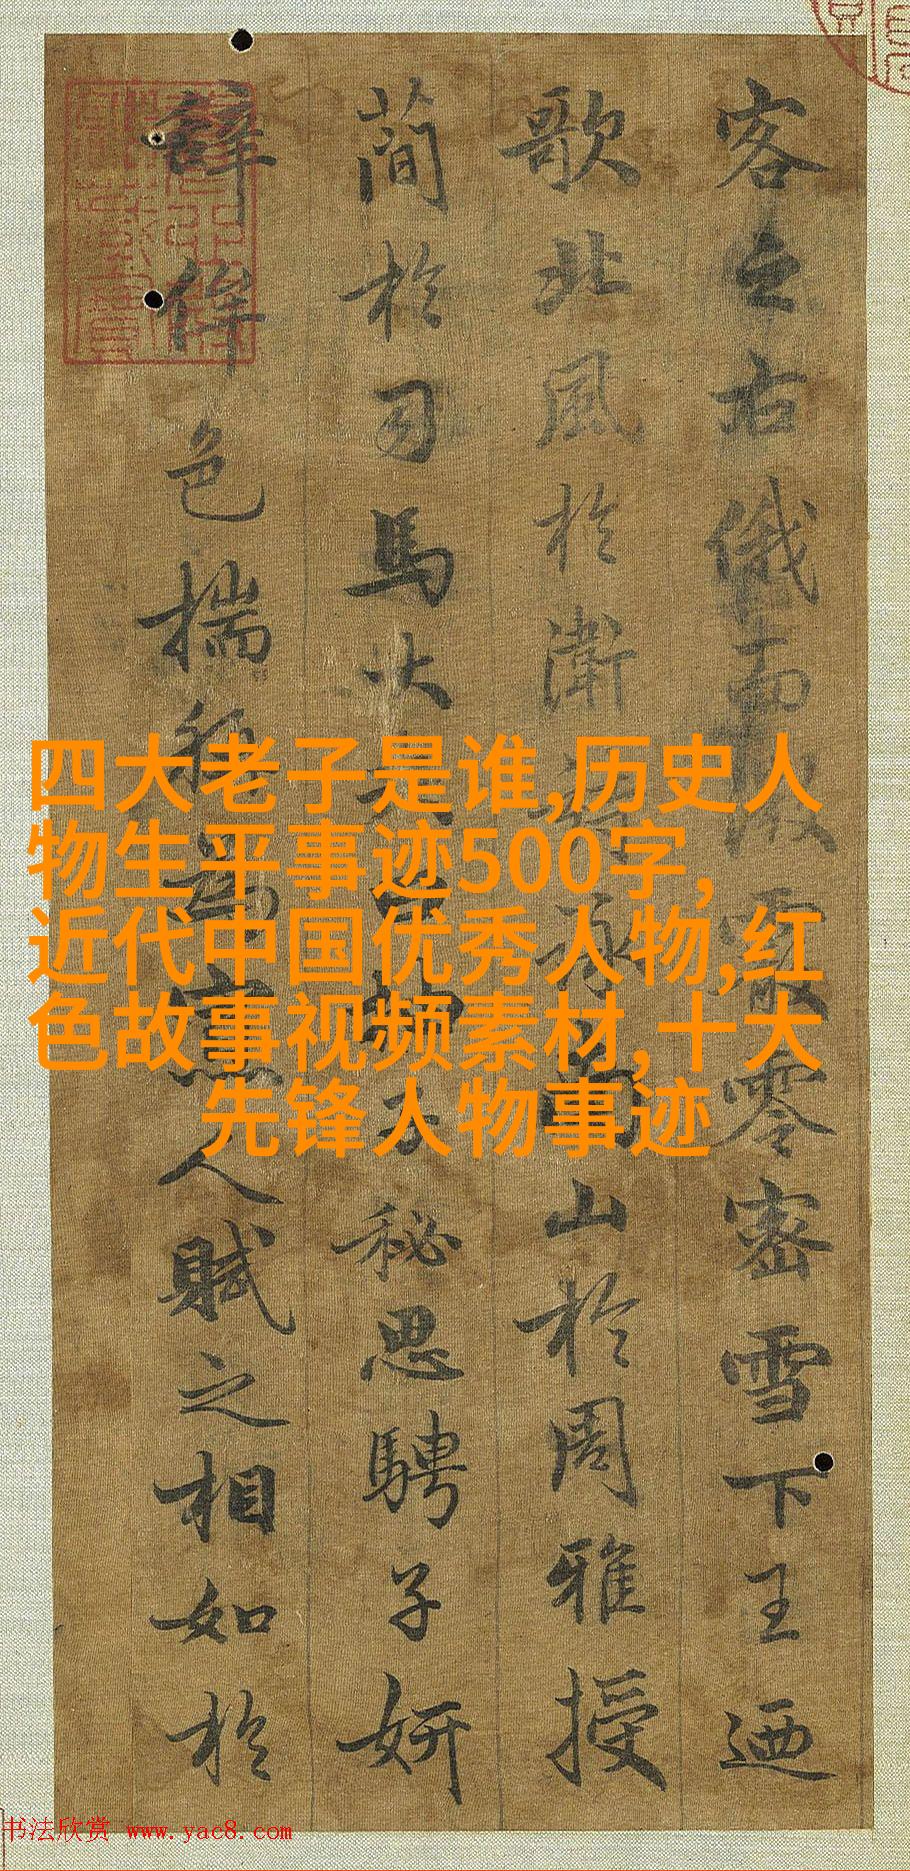 客之右俄而微霰零密雪下王迺
歌北風於衛詠南山於周雅授
簡於司馬大夫曰抽子秘思騁子妍
辭侔色揣稱為寡人賦之相如於
四大老子是谁,历史人
物生平事迹500字,
近代中国优秀人物,红
色故事视频素材,十大
先锋人物事迹
书法欣赏 www.yac8.com